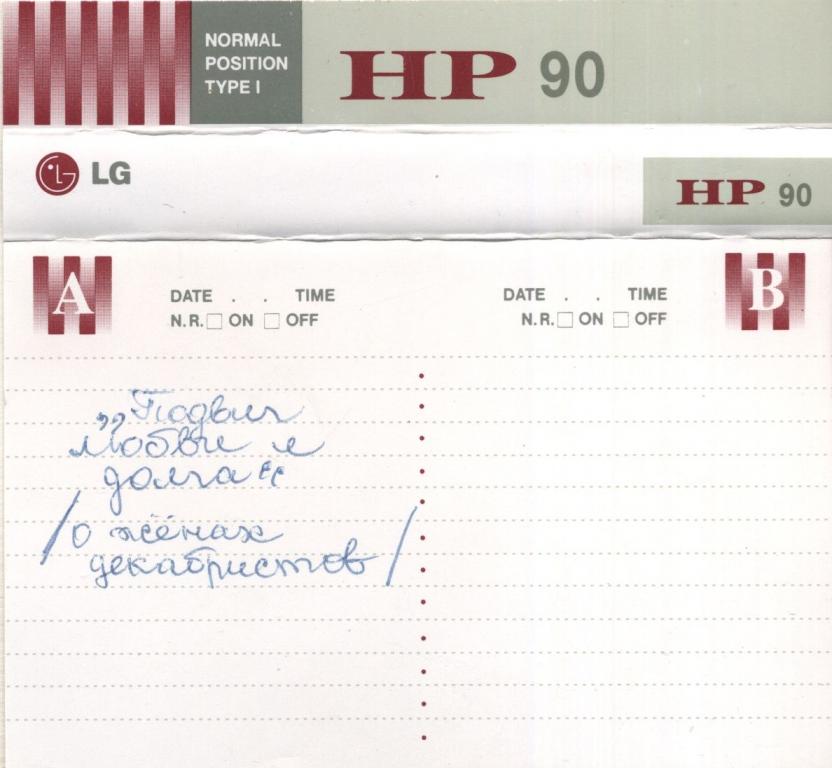 NORMAL
POSITION
TYPE I
HP 90
LG
HP 90
A
DATE . . TIME
N.R. ON OFF
DATE . . TIME
N.R. ON OFF
B
„Подвиг
любви и
долга“
/о жёнах
декабристов/